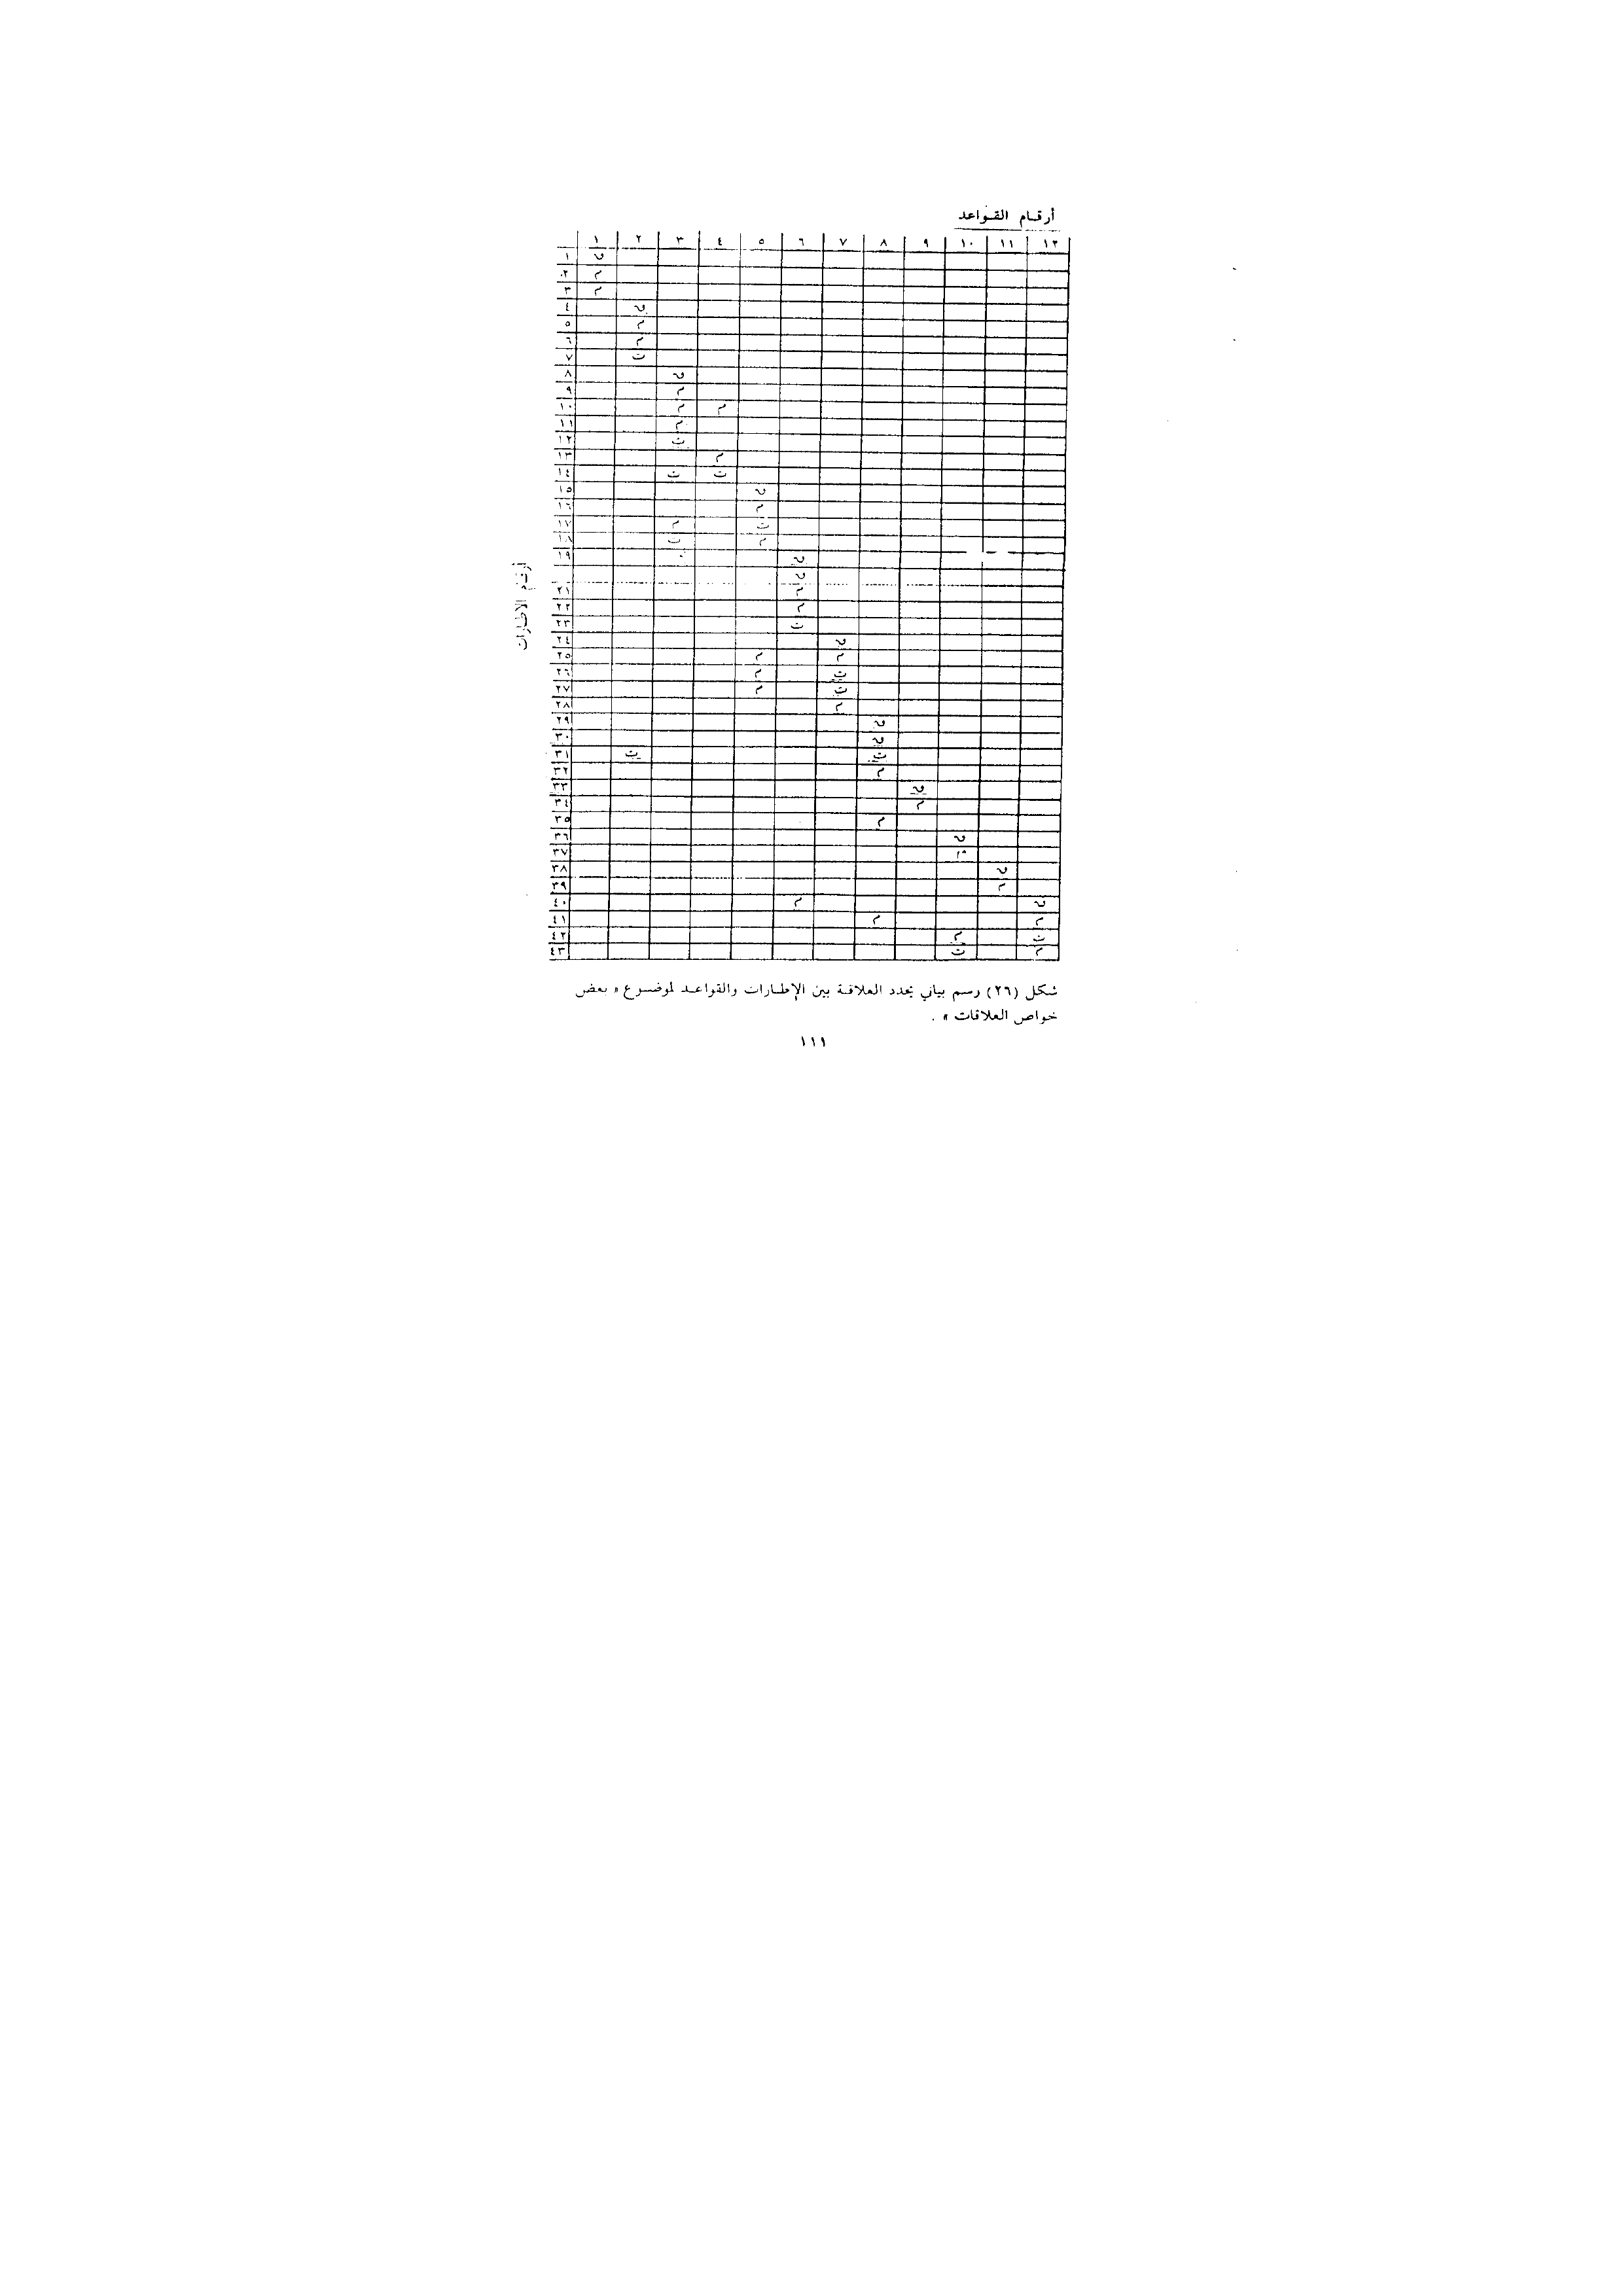 أرقام القواعد
١ ٢ ٣ ٤ ٥ ٦ ٧ ٨ ٩ ١٠ ١١ ١٢
أرقام الاطارات
١ ق
٢ م
٣ م
٤ ق
٥ م
٦ م
٧ ت
٨ ق
٩ م
١٠ م م
١١ م
١٢ ت
١٣ م
١٤ ت ت
١٥ ق
١٦ م
١٧ م ت
١٨ ت م
١٩ ق
ق
٢١ م
٢٢ م
٢٣ ت
٢٤ ق
٢٥ م م
٢٦ م ت
٢٧ م ت
٢٨ م
٢٩ ق
٣٠ ق
٣١ ت ت
٣٢ م
٣٣ ق
٣٤ م
٣٥ م
٣٦ ق
٣٧
٣٨ ق
٣٩ م
٤٠ م ق
٤١ م م
٤٢ م ت
٤٣ ت م
شكل (٢٦) رسم بياني يحدد العلاقة بين الإطارات والقواعد لموضوع « بعض
خواص العلاقات » .
١١١